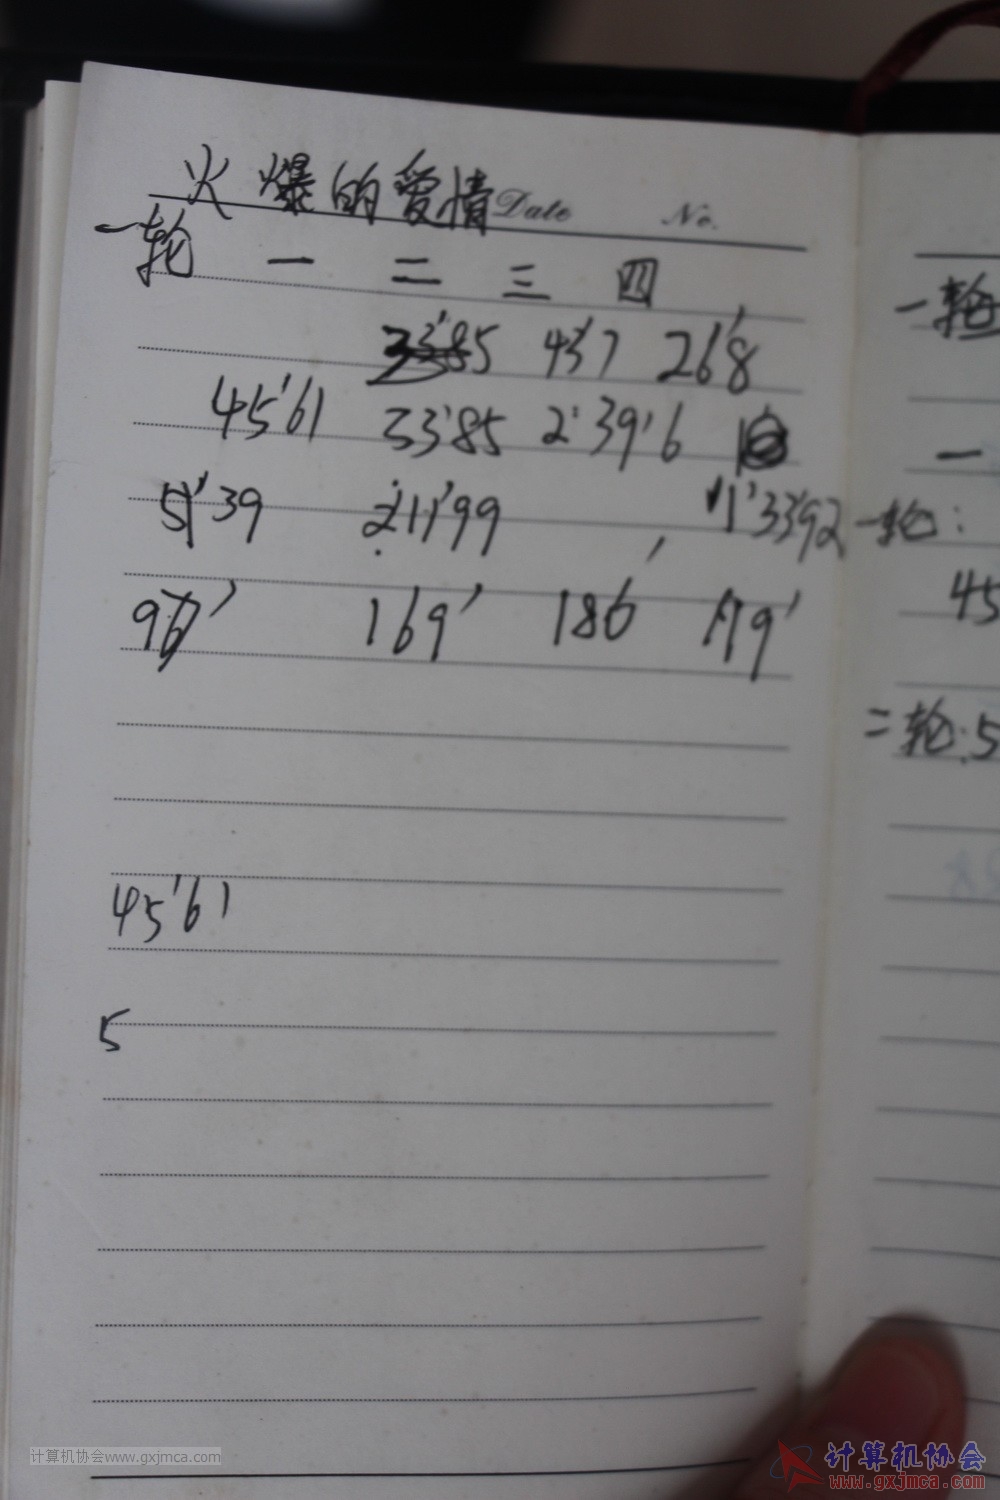 火爆的爱情 Date No.
一轮 一 二 三 四
33'85 43'7 26'8
45'61 33'85 2'39'6
51'39 2'11'99 1'33'92
96' 169' 186' 179'
45'61
5
一轮
一
一轮:
45
二轮:5
计算机协会www.gxjmca.com
计算机协会
www.gxjmca.com